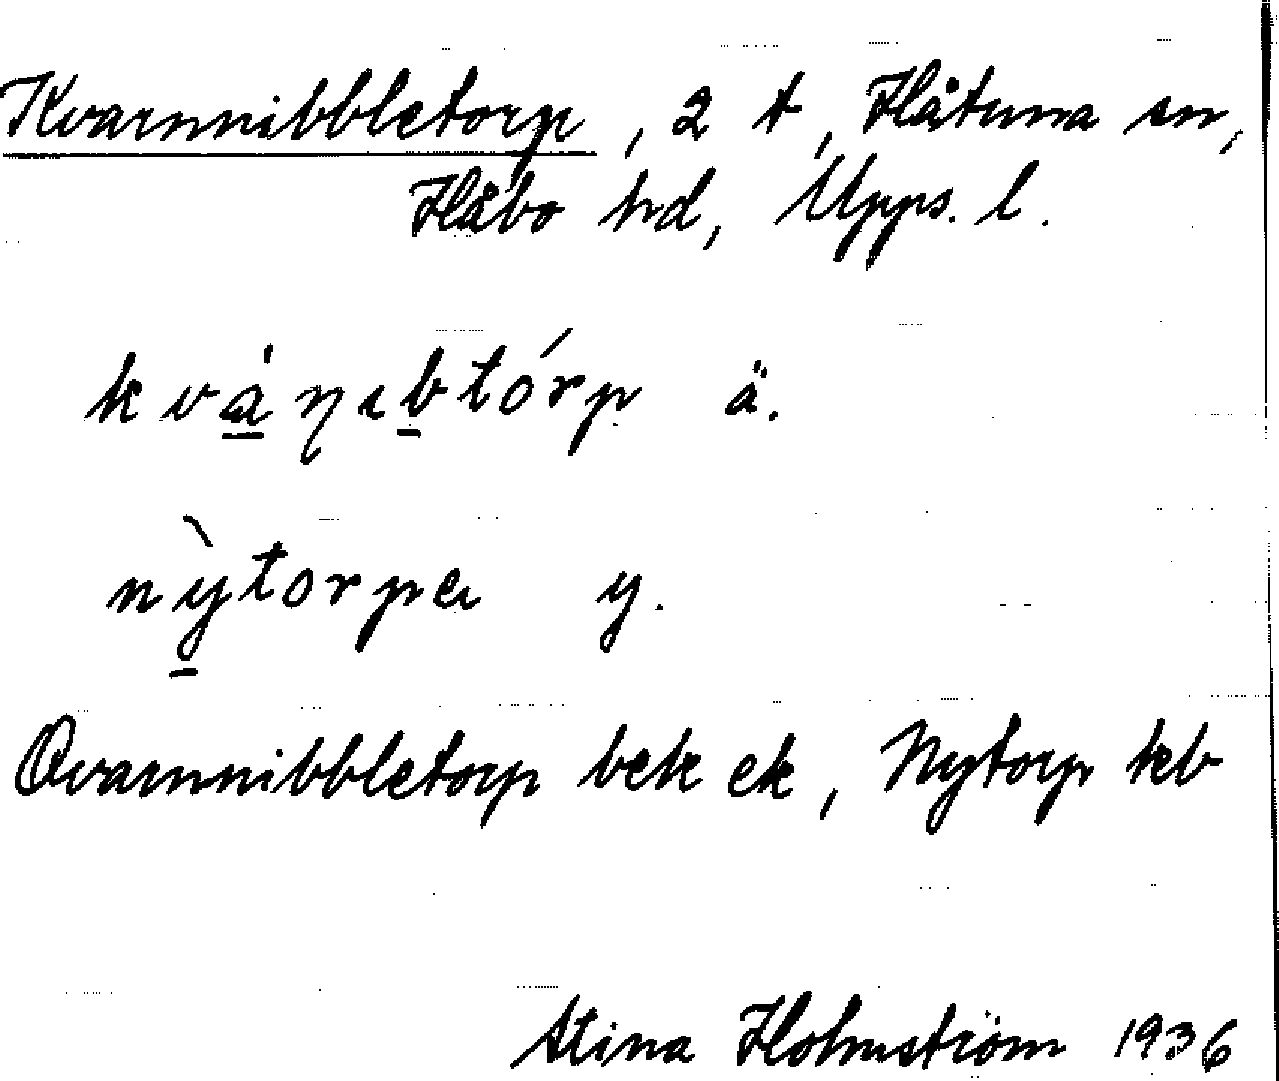 Kvarnnibbletorp, 2 t, Håtuna sn,
Håbo hd, Upps. l.
kvάɳɩbtórp ä.
nỳtorpɐt y.
Qvarnnibbletorp bek ek, Nytorp kb
Stina Holmström 1936